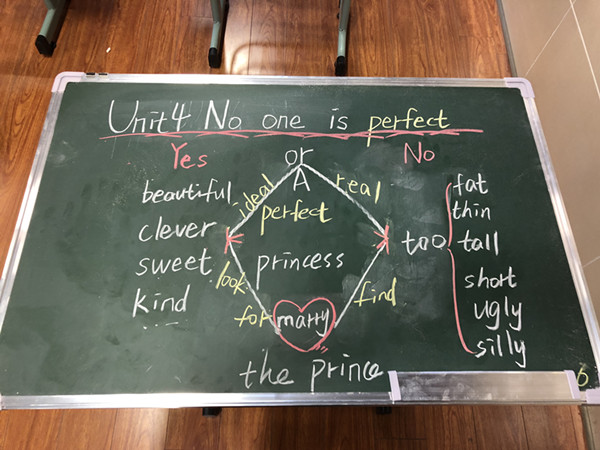 Unit4 No one is perfect
Yes or No
ideal A real
beautiful
clever
sweet
kind
...
perfect
princess
look
for
find
marry
the prince
too
fat
thin
tall
short
ugly
silly
6